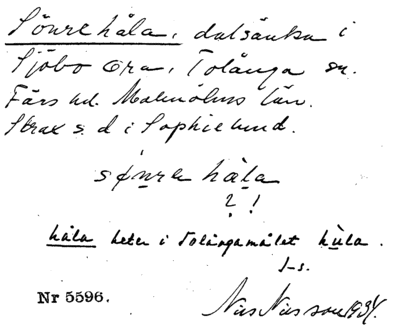 Sönre håla, dalsänka i
Sjöbo Ora, Tolånga sn.
Färs hd. Malmöhus län.
Strax s. d i Sophielund.
sønre håla
? !
håla heter i Tolångamålet hùla.
J-s.
Nr 5596.
Nils Nilsson 1934.